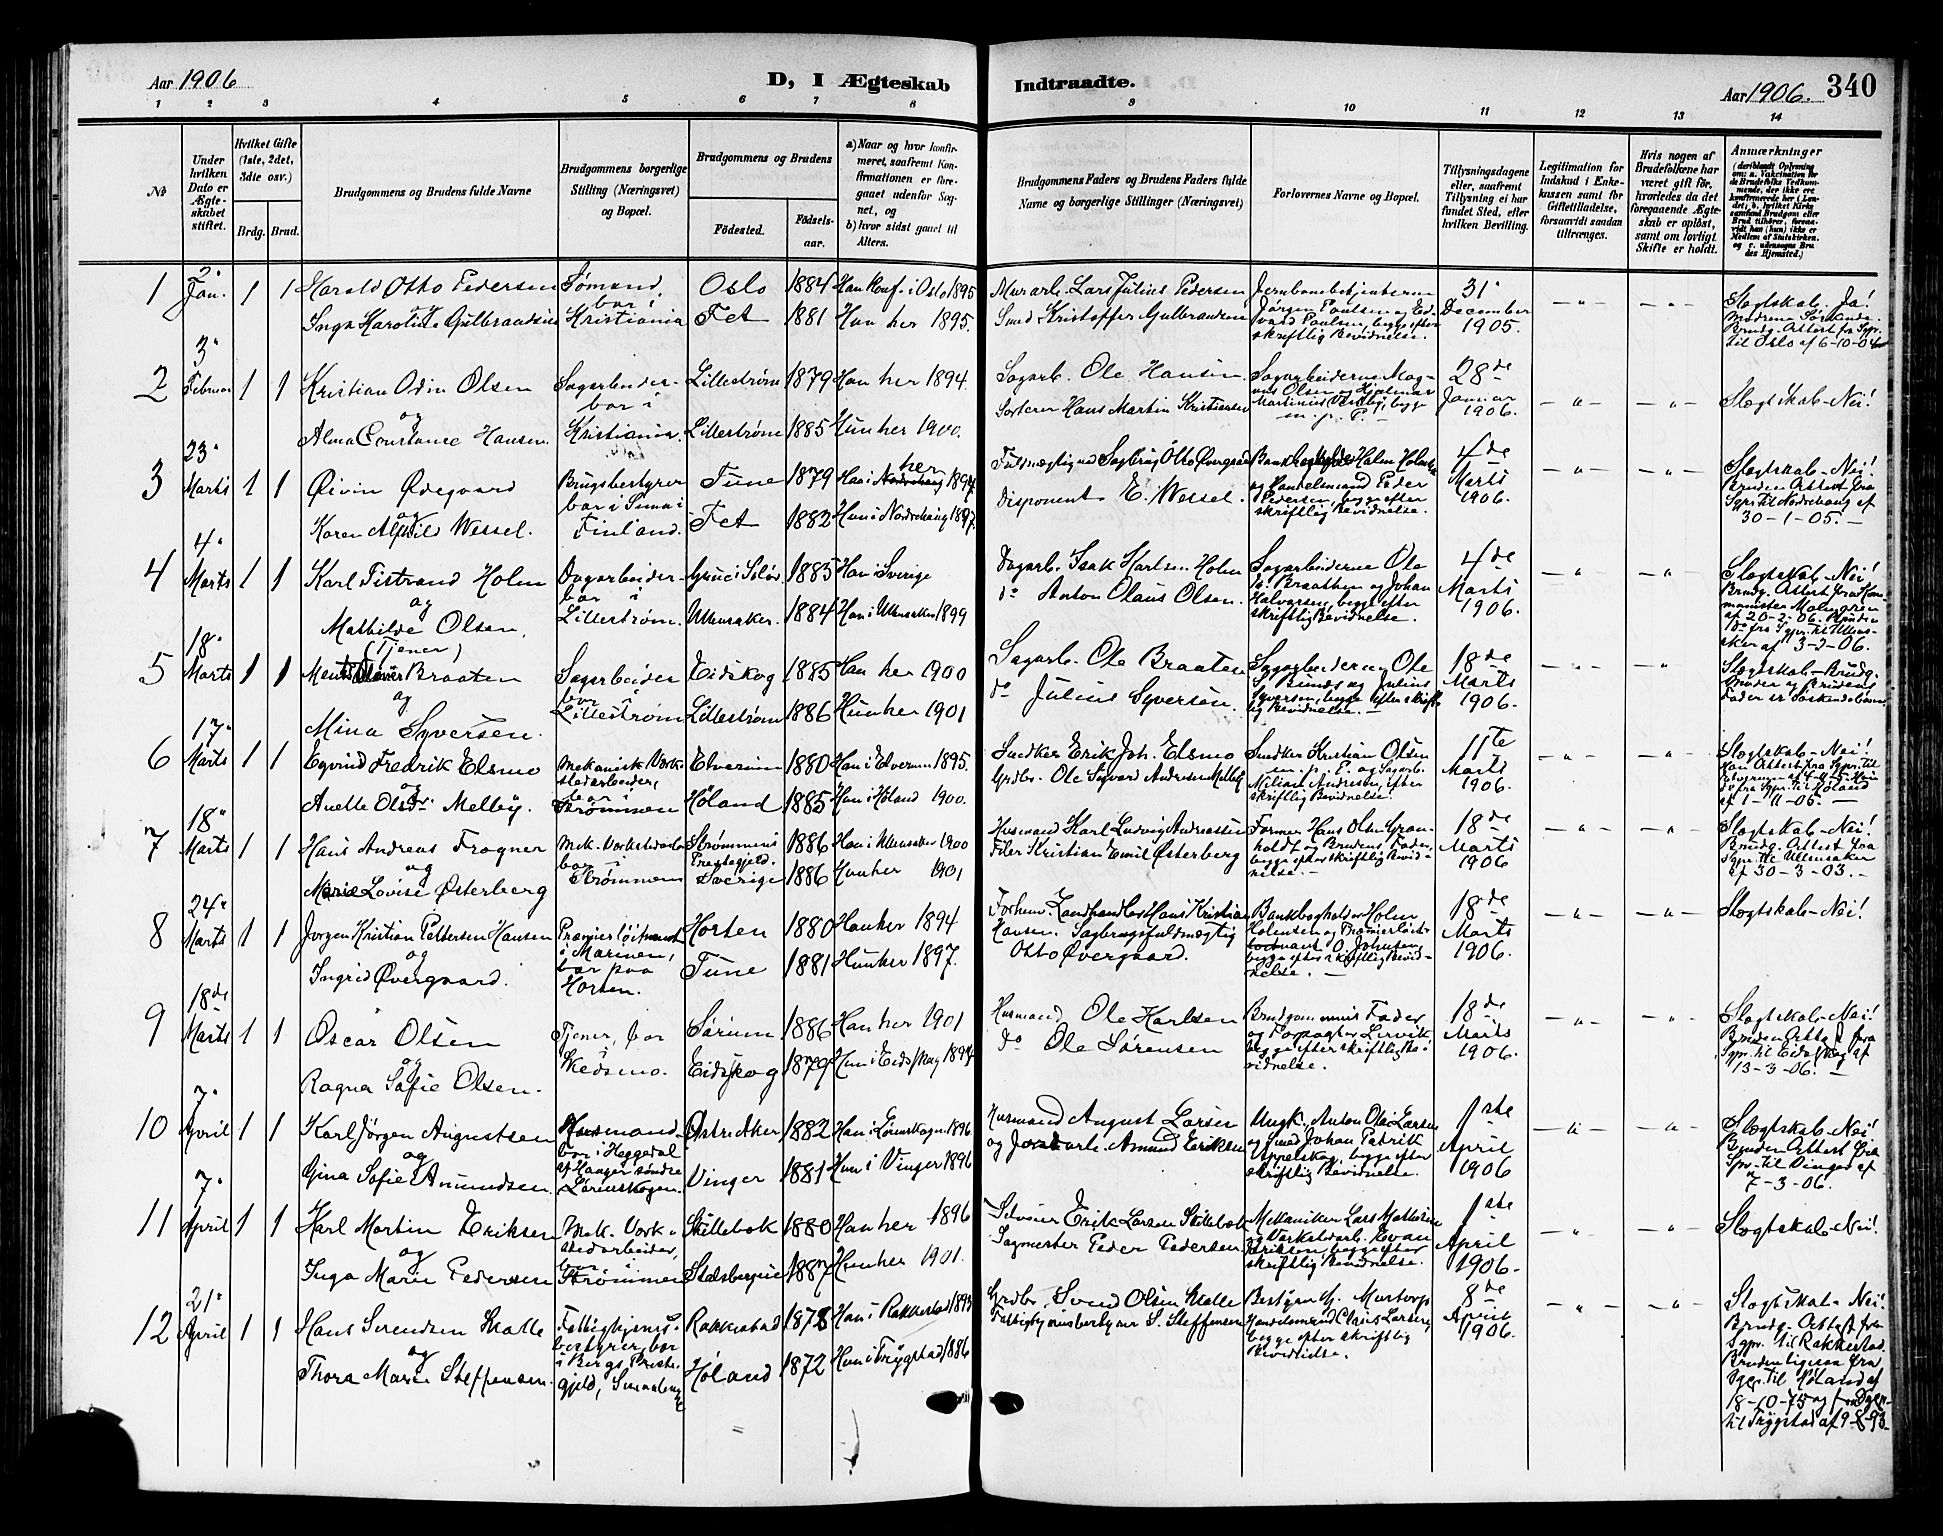 Aar 1906
D, I Ægteskab Indtraadte.
Aar 1906. 340
1 2 3 4 5 6 7 8 9 10 11 12 13 14
No
Under hvilken Dato er Ægteskabet stiftet.
Hvilket Gifte (1ste, 2det, 3die osv.)
Brdg. Brud.
Brudgommens og Brudens fulde Navne
Brudgommens borgerlige Stilling (Næringsvei) og Bopæl.
Brudgommens og Brudens
Fødested.
Fødselsaar.
a) Naar og hvor konfirmeret, saafremt Konfirmationen er foregaaet udenfor Sognet, og
b) hvor sidst gaaet til Alters.
Brudgommens Faders og Brudens Faders fulde Navne og borgerlige Stillinger (Næringsvei)
Forlovernes Navne og Bopæl.
Tillysningsdagene eller, saafremt Tillysning ei har fundet Sted, efter hvilken Bevilling.
Legitimation for Indskud i Enkekassen samt for Giftetilladelse, forsaavidt saadan tiltrænges.
Hvis nogen af Brudefolkene har været gift før, hvorledes da det foregaaende Ægteskab er opløst, samt om lovligt Skifte er holdt.
Anmærkninger
1
2. Jan.
1 1
Harald Otto Pedersen
og
Inga Karoline Gulbrandsen
Sømand, bor i Kristiania
Oslo 1884 Han Konf. i Oslo 1895
Fet 1881 Hun her 1895.
Murarb. Lars Julius Pedersen
Smed Kristoffer Gulbrandsen
Jernbanebetjenterne Jørgen Paulsen og Edvard Paulsen, begge efter skriftlig Bevidnelse.
31' December 1905.
— " — — " —
Slægtskab. Ja! Mødrene Søskende. Brudg. Attest fra Sgpr. til Oslo af 6-10-04
2
3' Februar
1 1
Kristian Odin Olsen
og
Alma Constance Hansen.
Sagarbeider bor i Kristiania.
Lillestrøm 1879 Han her 1894.
Lillestrøm 1885 Hun her 1900.
Sagarb. Ole Hansen
Sorterer Hans Martin Kristiansen
Sagarbeiderne Magnus Olsen og Hjalmar Martinius Vestby, begge m. p. P.
28de Januar 1906.
— " — — " —
Slægtskab - Nei!
3
23' Marts
1 1
Øivin Ødegaard
og
Karen Alfhild Wessel.
Brugsbestyrer bor i Finland.
Tune 1879 Han i her 1894
Fet 1882 Hun i Nordrehaug 1897.
Fuldmægtig ved Sagbrug Otto Øvergaard
Disponent E. Wessel.
Holm og Handelsmand Peder Pedersen, begge efter skriftlig Bevidnelse.
4de Marts 1906.
— " — — " —
Slægtskab - Nei! Bruden Attest fra Sgpr. til Nordrehaug af 30-1-05. —
4
4' Marts
1 1
Karl Tistrand Holm
og
Mathilde Olsen,
(Tjener)
Dagarbeider bor i Lillestrøm.
Grue i Solør 1885 Han i Sverige
Ullensaker. 1884 Hun i Ullensaker 1899
Dagarb. Isak Karlsen Holm
do Anton Olaus Olsen.
Sagarbeiderne Ole Braathen og Johan Halvorsen, begge efter skriftlig Bevidnelse.
4de Marts 1906.
— " — — " —
Slægtskab - Nei! Brudg. Attest af 20-2-06. Bruden do fra Sgpr. til Ullensaker af 3-2-06.
5
18' Marts
1 1
Braaten
og
Mina Syversen.
Sagarbeider bor i Lillestrøm
Eidskog 1885 Han her 1900
Lillestrøm 1886 Hun her 1901
Sagarb. Ole Braaten
do Julius Syversen.
Sagarbeiderne Ole og Julius Syversen, begge efter skriftlig Bevidnelse. —
18de Marts 1906.
— " — — " —
Slægtskab - Brudg. Moder og Brudens Fader er Søskendebørn
6
17' Marts
1 1
Eyvind Fredrik Elsmo
og
Anette Olsdr. Melby.
Mekanisk Værkstedarbeider, bor i Strømmen
Elverum 1880 Han i Elverum 1895.
Høland 1885 Hun i Høland 1900.
Snedker Erik Joh. Elsmo
Grdbr. Ole Sigvard Andersen Melby
Snedker Kristian Olsen m. p. P. og Sagarb. Milian Andersen, efter skriftlig Bevidnelse.
11te Marts 1906.
— " — — " —
Slægtskab - Nei! Han Attest fra Sgpr. til Elverum af 4-11-05. Hun do fra Sgpr. til Høland af 1-11-05. —
7
18' Marts
1 1
Hans Andreas Frogner
og
Marie Lovise Østerberg
Mek. Værkstedarb. bor i Strømmen
Strømmens Præstegjeld. 1886 Han i Ullensaker 1900
Sverige 1886 Hun her 1901
Husmand Karl Ludvig Andreassen
Filer Kristian Emil Østerberg
Former Hans Olsen Granholdt og Brudens Fader, begge efter skriftlig Bevidnelse. —
18de Marts 1906
— " — — " —
Slægtskab - Nei! Brudg. Attest fra Sgpr. til Ullensaker af 30-3-03. —
8
24' Marts
1 1
Jørgen Kristian Pettersen Hansen
og
Ingrid Øvergaard.
Premierløitnant i Marinen, bor paa Horten.
Horten 1880 Han her 1894
Tune 1881 Hun her 1897.
Forhenv. Landhandler Hans Kristian Hansen.
Sagbrugsfuldmægtig Otto Øvergaard.
Bankbogholder Holm Holmsen og Premierløitnant O. Johnsen, begge efter skriftlig Bevidnelse. —
18de Marts 1906.
— " — — " —
Slægtskab - Nei!
9
18de Marts
1 1
Oscar Olsen
og
Ragna Sofie Olsen.
Tjener, bor Skedsmo.
Sørum 1886 Han her 1901
Eidskog 1879 Hun i Eidskog 1894
Husmand Ole Karlsen
do Ole Sørensen
Brudgommens Fader og begge efter skriftlig Bevidnelse.
18de Marts 1906.
— " — — " —
Slægtskab - Nei! Bruden Attest fra Sgpr. til Eidskog af 13-3-06. —
10
7' April
1 1
Karl Jørgen Augustsen
og
Gina Sofie Amundsen.
Husmand bor i Heggedal af Haager søndre Lørenskogen.
Østre Aker 1882 Han i Lørenskogen 1896
Vinger 1881 Hun i Vinger 1896
Husmand August Larsen
og Jordarb. Amund Eriksen
Ungk. Anton Olai Larsen og Smed Johan Patrik Appelskog, begge efter skriftlig Bevidnelse.
1ste April 1906
— " — — " —
Slægtskab - Nei! Bruden Attest fra Spr. til Vinger af 7-3-06.
11
7' April
1 1
Karl Martin Eriksen
og
Inga Marie Pedersen
Mek. Værkstedarbeider, bor i Strømmen
Skillebæk 1880 Han her 1896
Stalsberg 1887 Hun her 1901.
Selveier Erik Larsen Skillebæk
Sagmester Peder Pedersen
Mekaniker Lars Mathisen og Værkstedarb. Edvan Eriksen, begge efter skriftlig Bevidnelse.
1ste April 1906.
— " — — " —
Slægtskab - Nei!
12
21' April
1 1
Hans Svendsen Skolle
og
Thora Marie Steffensen.
Fattighjemsbestyrer, bor i Bergs Præstegjeld, Smaalene
Rakkestad 1878 Han i Rakkestad 1893
Høland 1872 Hun i Trygstad 1886
Grdbr. Svend Olsen Skolle
S. Steffensen
Bestyrer M. Mastorp Handelsmand Chris. Larsen, begge efter skriftlig Bevidnelse.
8de April 1906.
— " — — " —
Slægtskab - Nei. Brudg. Attest fra Sgpr. til Rakkestad. Bruden ligesaa fra Sgpr. til Høland af 18-10-75 og fra Sgpr. til Trygstad af 9-8-93.